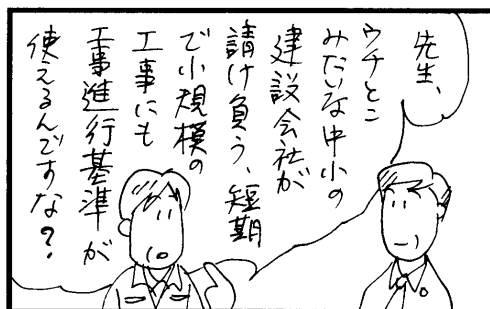 先生、
ウチとこ
みたいな中小の
建設会社が
請け負う、短期
で小規模の
工事にも
工事進行基準が
使えるんですな?